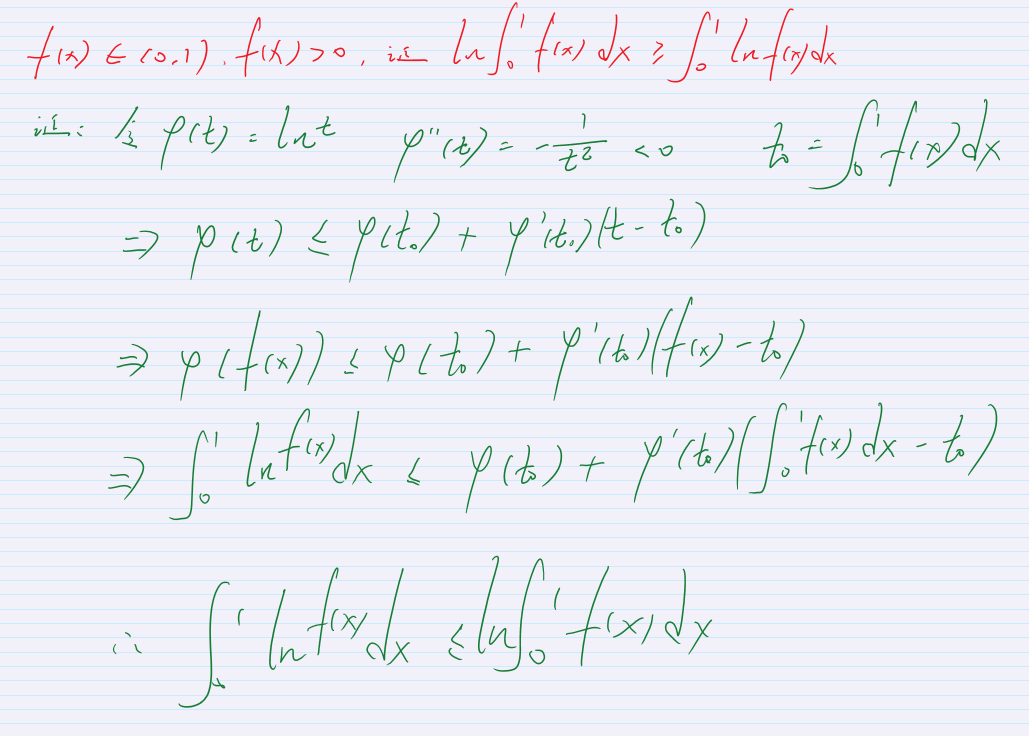 f(x) ∈ (0,1), f(x) > 0, 证 ln∫₀¹ f(x) dx ≥ ∫₀¹ ln f(x) dx
证: 令 φ(t) = ln t φ''(t) = -1/t² < 0 t₀ = ∫₀¹ f(x) dx
⇒ φ(t) ≤ φ(t₀) + φ'(t₀)(t - t₀)
⇒ φ(f(x)) ≤ φ(t₀) + φ'(t₀)(f(x) - t₀)
⇒ ∫₀¹ ln f(x) dx ≤ φ(t₀) + φ'(t₀)(∫₀¹ f(x) dx - t₀)
∴ ∫₀¹ ln f(x) dx ≤ ln∫₀¹ f(x) dx